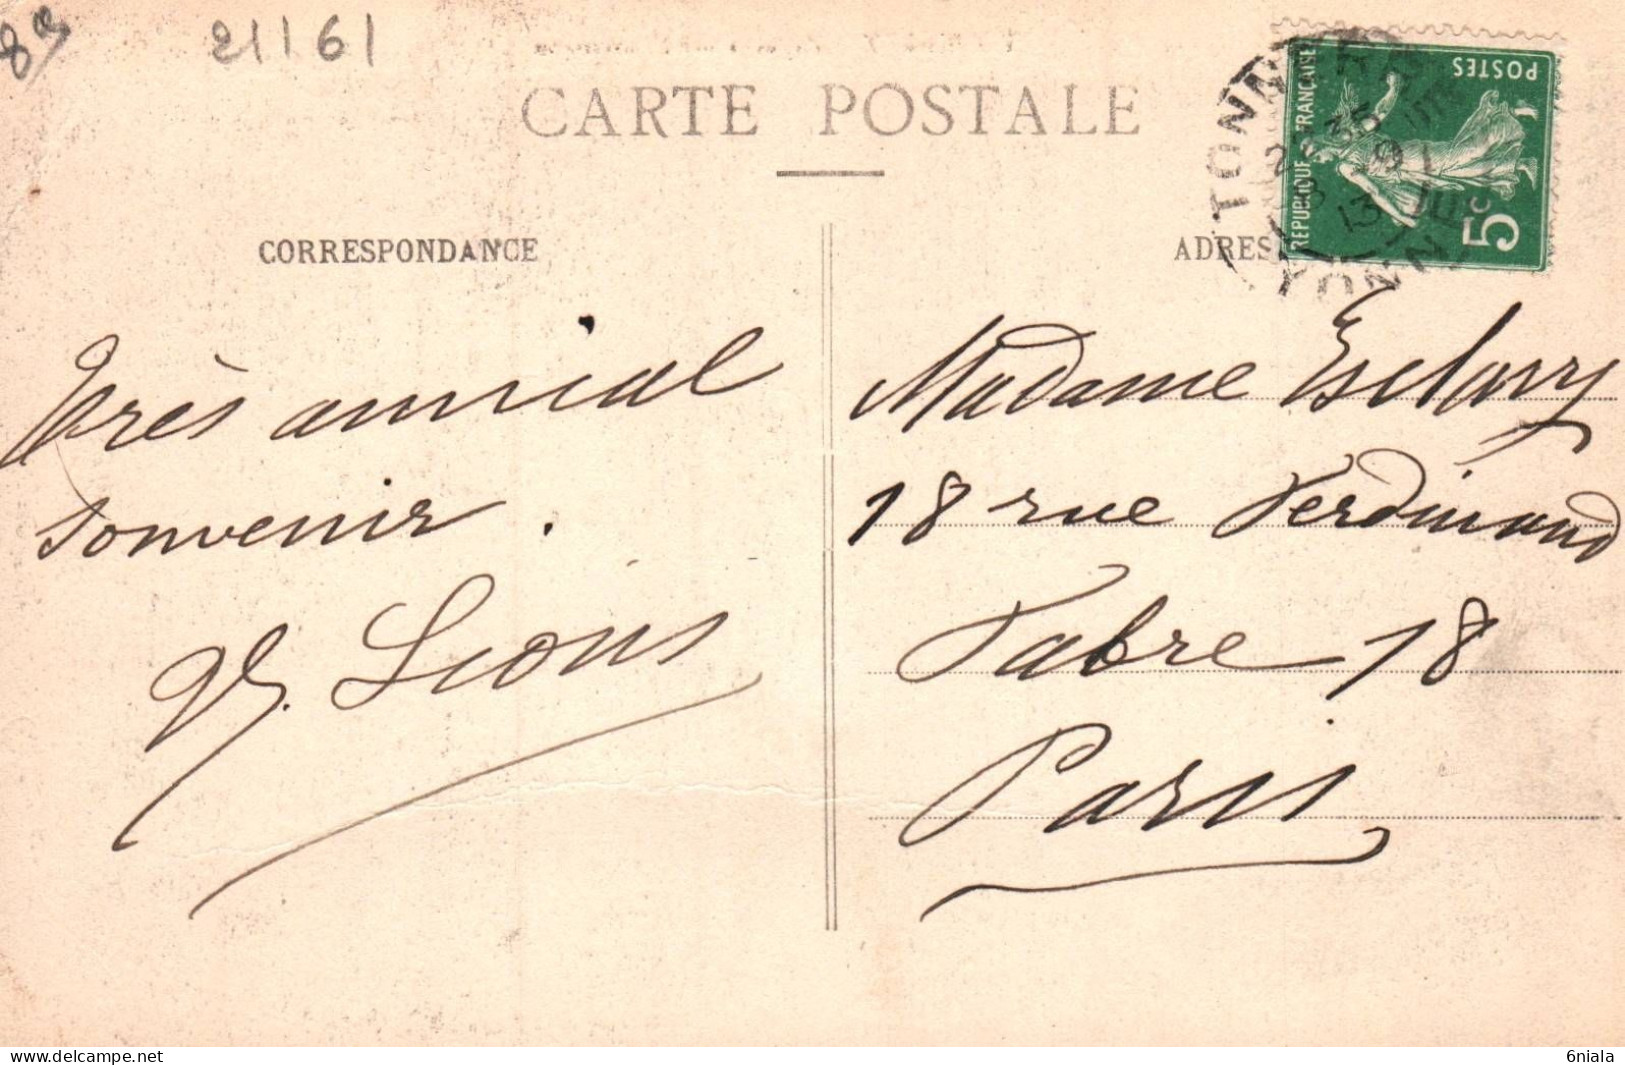 21161
CARTE POSTALE
CORRESPONDANCE
ADRES
POSTES
REPUBLIQUE FRANÇAISE
5c
TONNERRE
YONNE
13
Très amical
souvenir.
Lions
Madame Esclavy
18 rue Ferdinand
Fabre 18
Paris
delcampe.net
6niala